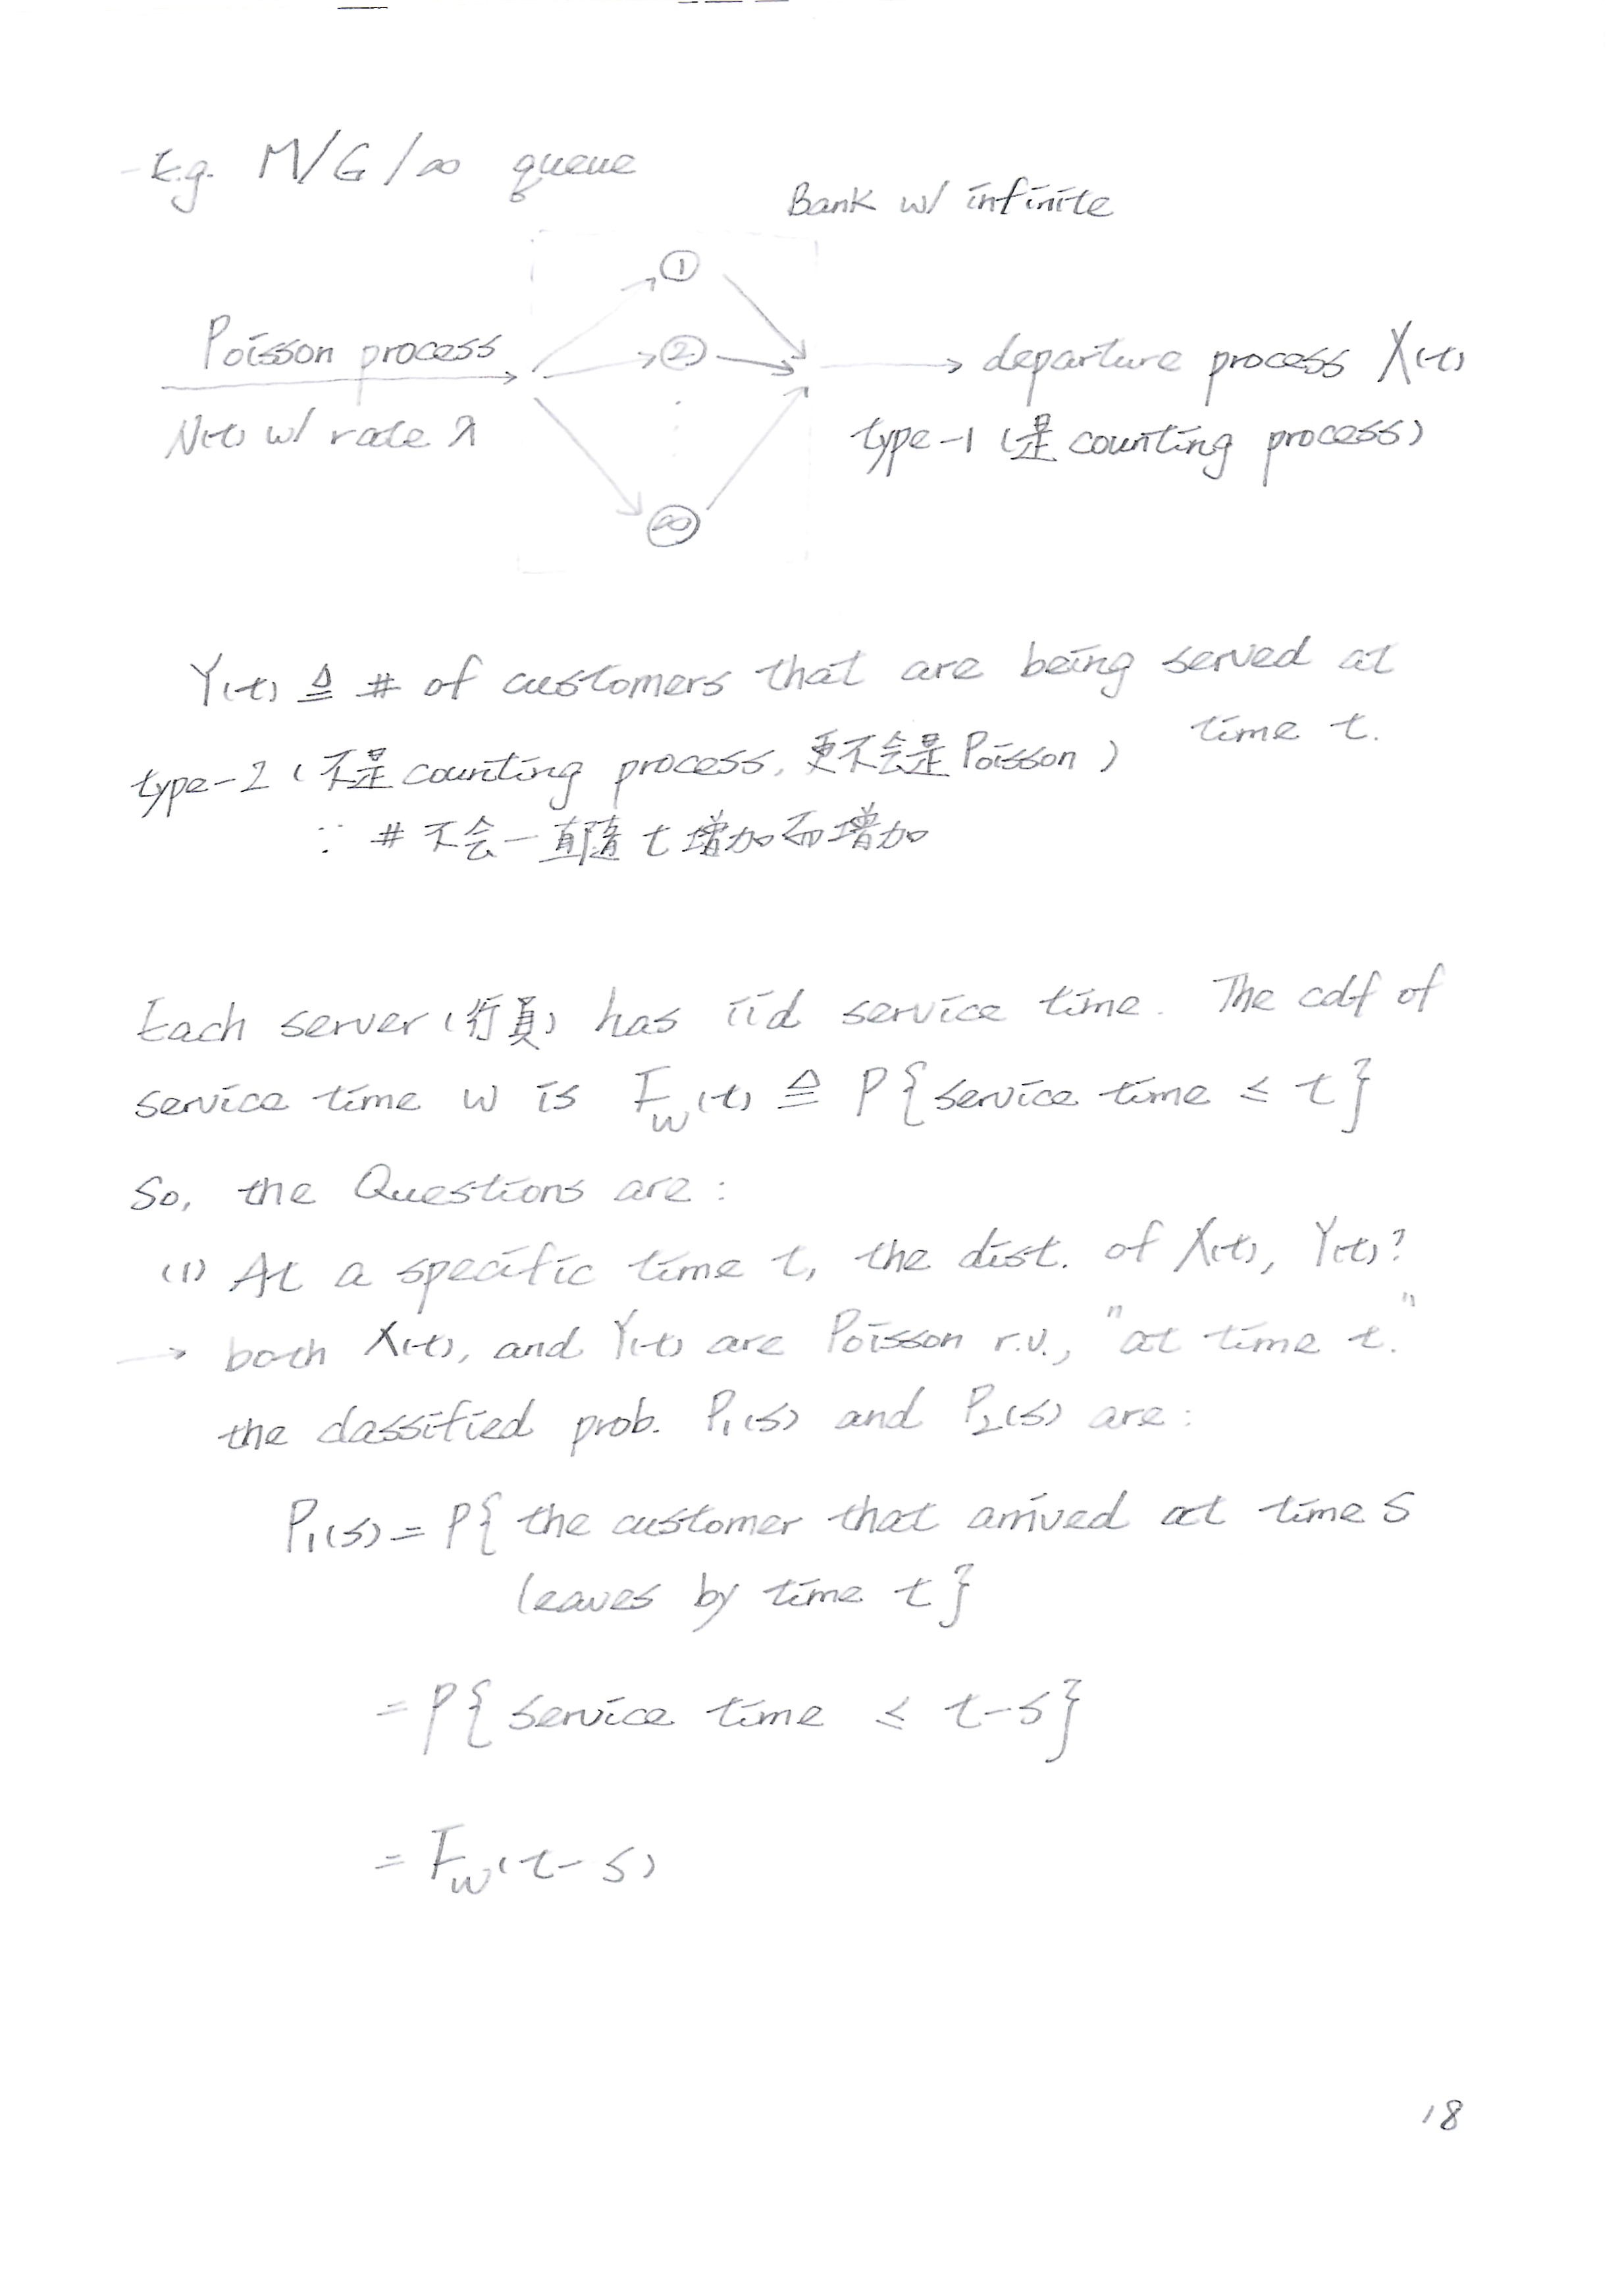 E.g. M/G/∞ queue
Bank w/ infinite
①
Poisson process
②
departure process X(t)
N(t) w/ rate λ
type-1 (是 counting process)
∞
Y(t) ≜ # of customers that are being served at
time t.
type-2 (不是 counting process, 更不会是 Poisson)
∵ # 不会一直隨 t 增加而增加
Each server (行員) has iid service time. The cdf of
service time w is F_w(t) ≜ P{service time ≤ t}
So, the Questions are:
(1) At a specific time t, the dist. of X(t), Y(t)?
→ both X(t), and Y(t) are Poisson r.v., "at time t."
the classified prob. P₁(s) and P₂(s) are:
P₁(s) = P{ the customer that arrived at time s
leaves by time t}
= P{ service time ≤ t-s}
= F_w(t-s)
18